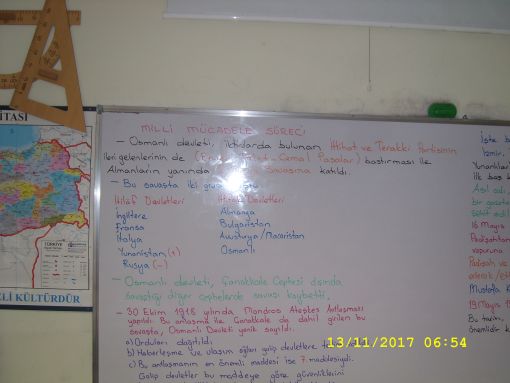 İTASI
TÜRKİYE
ELİ KÜLTÜRDÜR
MİLLİ MÜCADELE SÜRECİ
- Osmanlı devleti, iktidarda bulunan İttihat ve Terakki Partisinin
ileri gelenlerinin de Cemal Paşalar) bastırması ile
Almanların yanında Savaşına katıldı.
- Bu savaşta iki
İtilaf Devletleri
Devletleri
İngiltere
Almanya
Fransa
Bulgaristan
İtalya
Avusturya/Macaristan
Yunanistan (+)
Osmanlı
Rusya (-)
- Osmanlı devleti, Çanakkale Cephesi dışında
savaştığı diğer cephelerde savaşı kaybetti.
- 30 Ekim 1918 yılında Mondros Ateşkes Antlaşması
yapıldı. Bu antlaşma ile Çanakkale de dahil girilen bu
savaşta, Osmanlı Devleti yenik sayıldı.
a) Orduları dağıtıldı.
b) Haberleşme ve ulaşım ağları galip devletlere
c) Bu antlaşmanın en önemli maddesi ise 7. maddesiydi.
Galip devletler bu maddeye göre güvenliklerini
İşte
İzmir.
Yunanlılar
İlk baş
Asıl adı
bir gazete
şehit edil
16 Mayıs
Padişahtan
vapuruna
Padişah ve
ederek
Mustafa K
19 Mayıs
Bu tarih,
önemlidir
13/11/2017 06:54